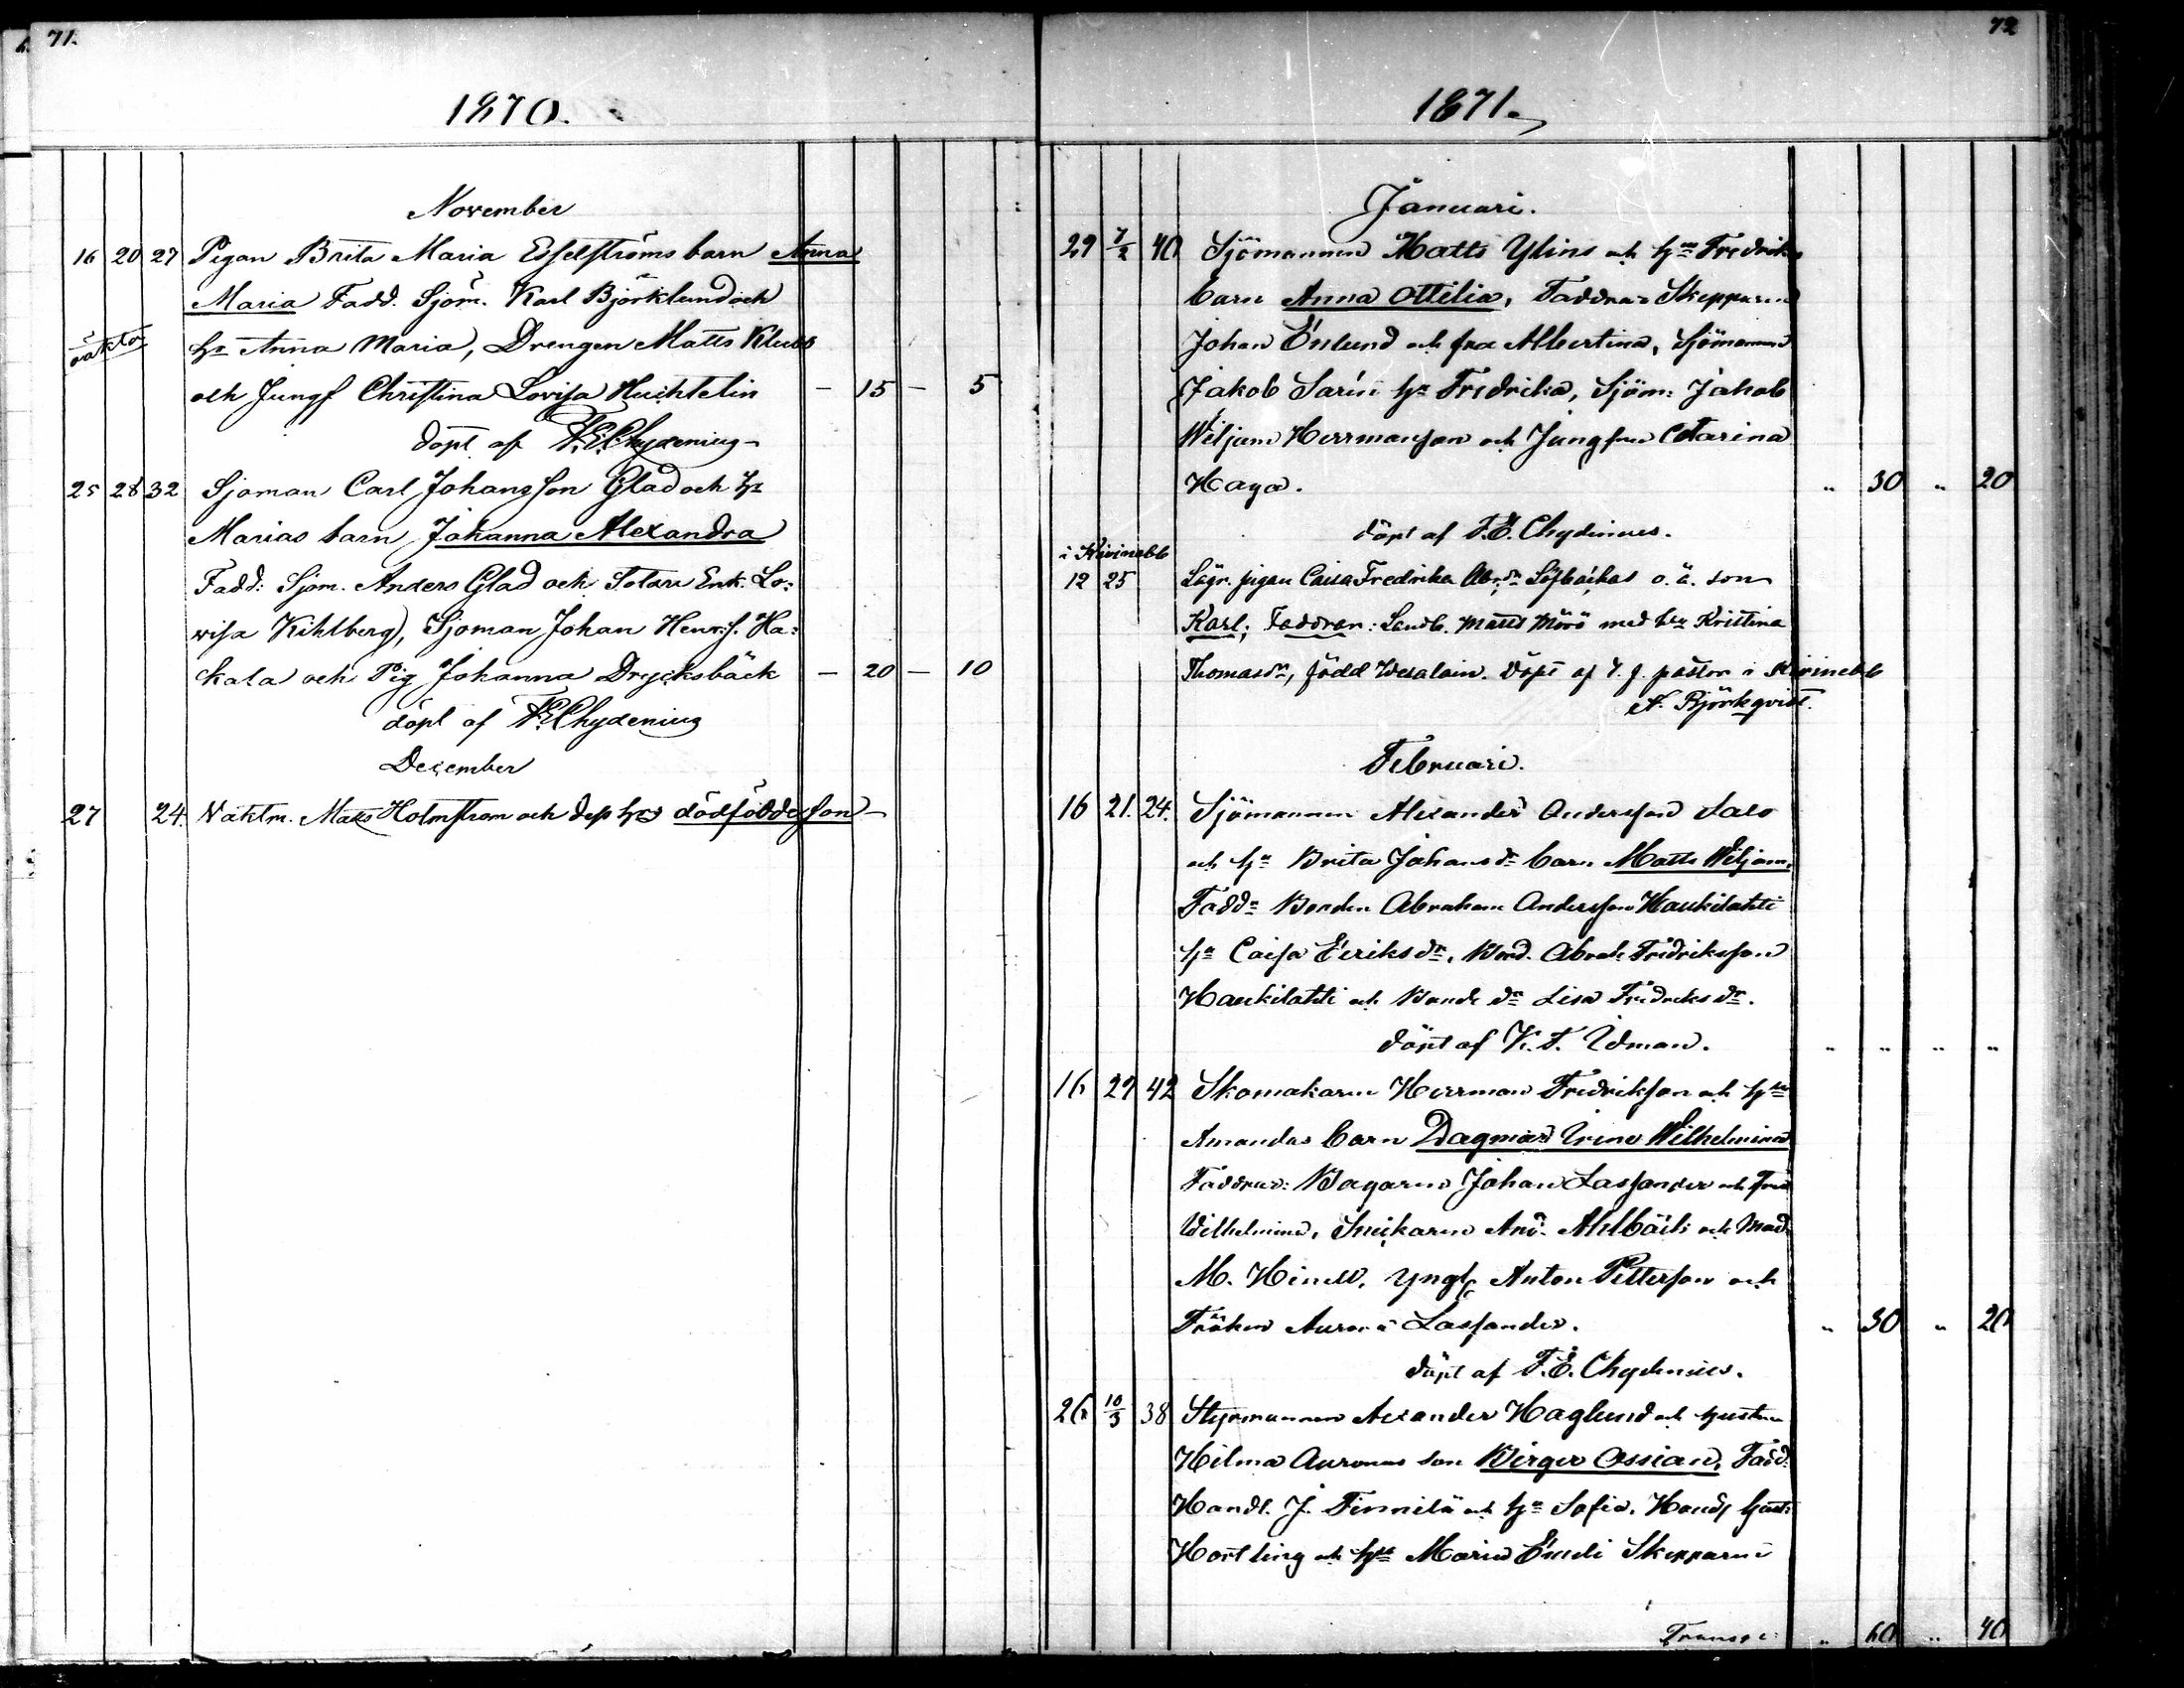 71.
1870.
November
16 20 27 Pigan Brita Maria Esselströms barn Anna
Maria Fadd. Sjöm. Karl Björklund och
oäkta
hr Anna Maria, Drengen Matts Klubb
och Jungf Christina Lovisa Huihtelin — 15 — 5
döpt af F.E. Chydenius
25 28 32 Sjöman Carl Johansson Glad och hr
Marias barn Johanna Alexandra
Fadd: Sjöm. Anders Glad och Enk. Lo-
visa Kihlberg, Sjöman Johan Henr.s. Ha-
kala och Pig Johanna Drycksbäck — 20 — 10
döpt af F.E. Chydenius
December
27 24. Vaktm. Matts Holmström och dess hrs dödfödde son —
72
1871.
Januari.
29 7/2 40 Sjömannen Matts Ylins och Fredrikas
barn Anna Ottilia, Faddrar Skepparen
Johan Enlund och fru Albertina, Sjömannen
Jakob Sarin hu Fredrika, Sjöm: Jakob
Wiljam Herrmanson och Jungfrun Catarina
Haga. „ 30 „ 20
döpt af F.E. Chydenius.
i Kivinebb
12 25 Lägr. pigan Caisa Fredrika Abr.dr o. ä. son
Karl; Faddrar: Landb. Matts Mörö med hu Kristina
Thomasdr, född Wesalain. Döpt af pastor i Kivinebb
A. Björkqvist.
Februari.
16 21. 24. Sjömannen Alexander Andersson Salo
och hu Brita Johansdr barn Matts Wiljam.
Faddr Bonden Abraham Andersson Haukilahti
hu Caisa Eriksdr, Bond. Abrah. Fredriksson
Haukilahti och Bonde dr Lisa Fredriksdr.
döpt af K. F. Idman. „ „ „ „
16 29 42 Skomakaren Herrman Fredrikson och hu
Amandas barn Dagmar Irene Wilhelmina
Faddrar: Bagaren Johan Lassander och Fru
Wilhelmina, Snickaren And. Ahlbäck och Mad.
M. Hinell, Yngl. Anton Petterson och
Fröken Aurora Lassander. „ 30 „ 20
döpt af F.E. Chydenius.
26 10/3 38 Styrmannen Alexander Haglund och hustru
Hilma Auroras son Birger Ossian, Fadd.
Handl. J. Finnilä och hu Sofia. Handl Gust.
Hortling och hu Maria Emeli Skepparen
Transp: „ 60 „ 40